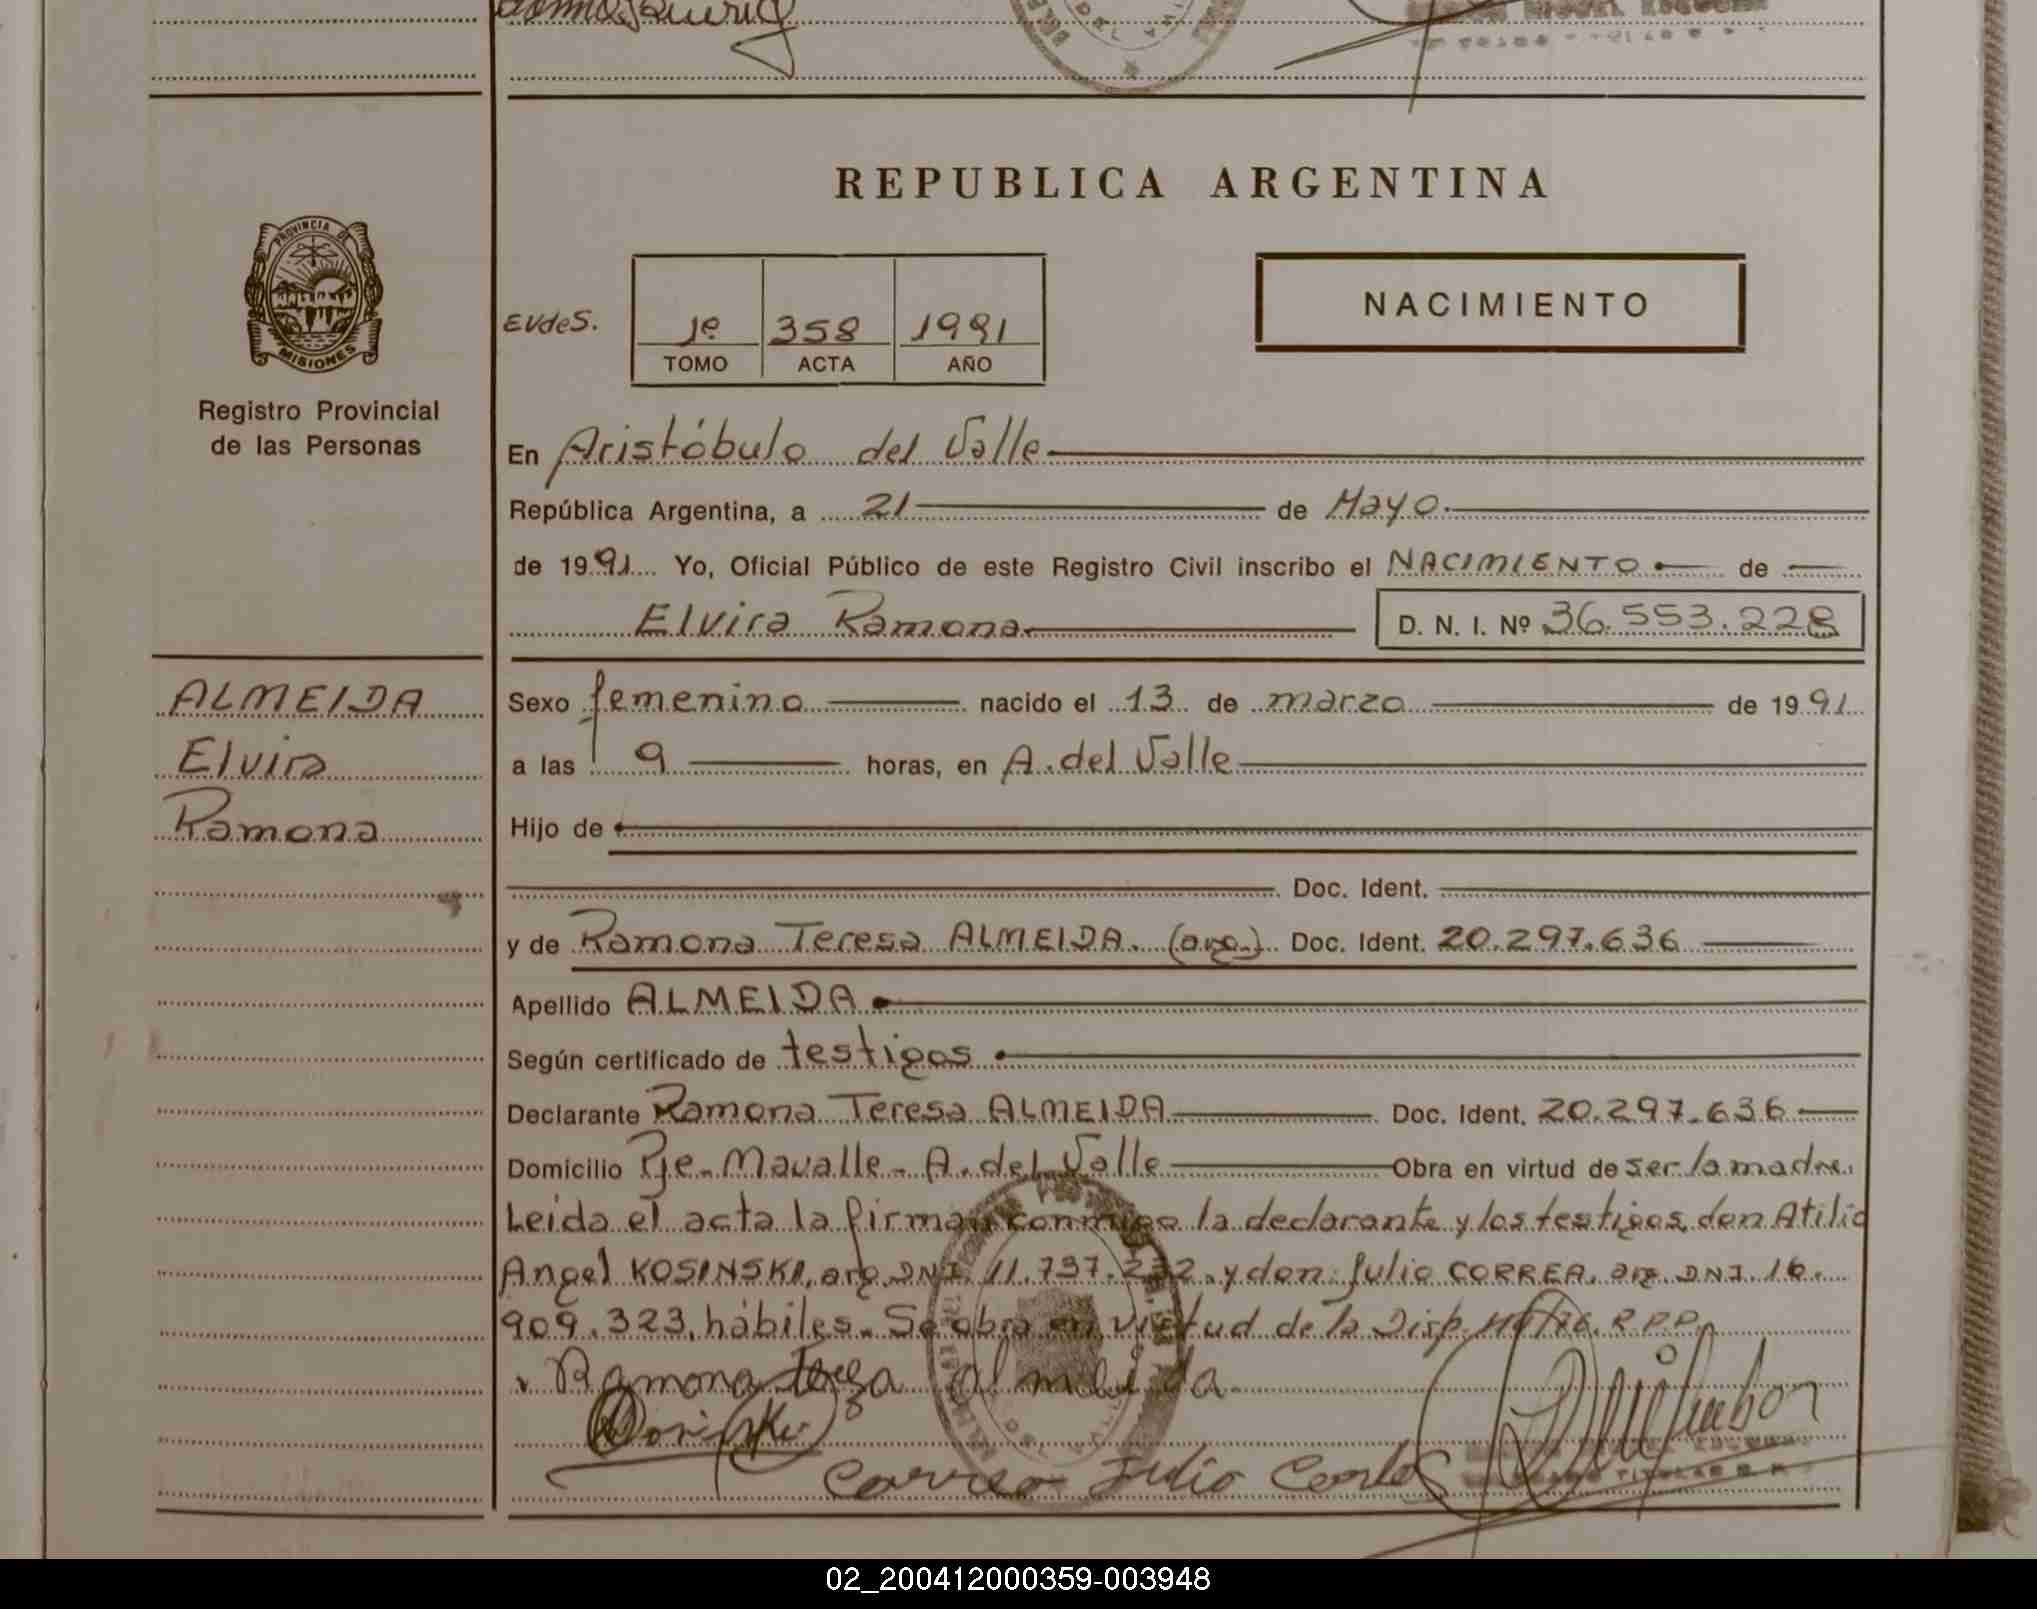 REPUBLICA ARGENTINA
PROVINCIA DE
MISIONES
Registro Provincial
de las Personas
EVdeS.
1º 358 1991
TOMO ACTA AÑO
NACIMIENTO
En Aristóbulo del Valle
República Argentina, a 21 de Mayo
de 1991 Yo, Oficial Público de este Registro Civil inscribo el NACIMIENTO de
Elvira Ramona D. N. I. Nº 36.553.228
ALMEIDA
Elvira
Ramona
Sexo femenino nacido el 13 de marzo de 1991
a las 9 horas, en A. del Valle
Hijo de
Doc. Ident.
y de Ramona Teresa ALMEIDA. (arg.) Doc. Ident. 20.297.636
Apellido ALMEIDA
Según certificado de testigos
Declarante Ramona Teresa ALMEIDA Doc. Ident. 20.297.636
Domicilio Pje. Mavalle - A. del Valle Obra en virtud de ser la madre.
Leída el acta la firman conmigo la declarante y los testigos, don Atilio
Angel KOSINSKI, arg. DNI. 11.737.232, y don Julio CORREA, arg. DNI. 16.
909.323, hábiles. Se obra en virtud de la Disp. R.P.P.
Ramona
Correa Julio Carlos
02_200412000359-003948